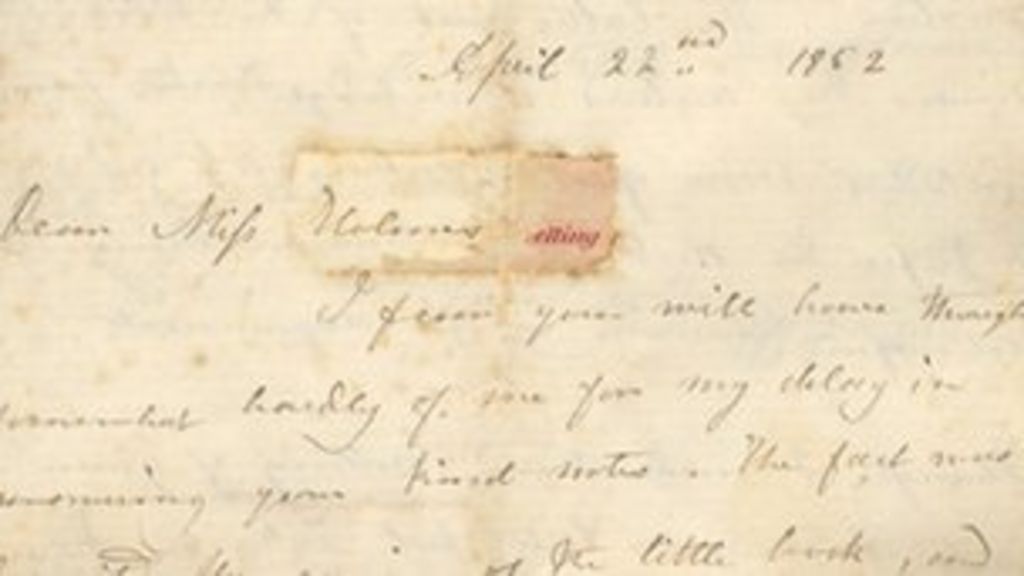 April 22nd 1852
Dear Miss Holmes
etting
I fear you will have thought
somewhat hardly of me for my delay in
answering your kind note. The fact was
of the little book, and